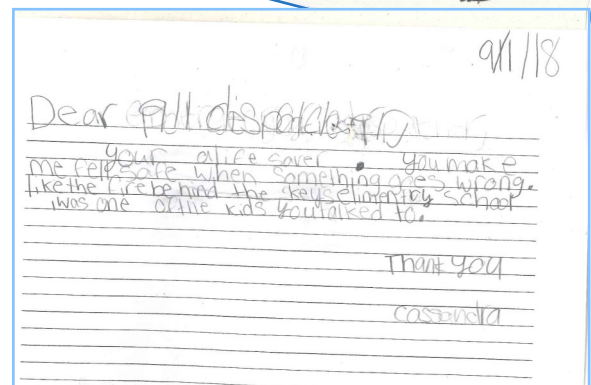 9/11/18
Dear 911 dispatcher
your a life saver. you make
me feel safe when something goes wrong.
Like the fire behind the keys elimentary school
i was one of the kids you talked to.
Thank you
cassandra